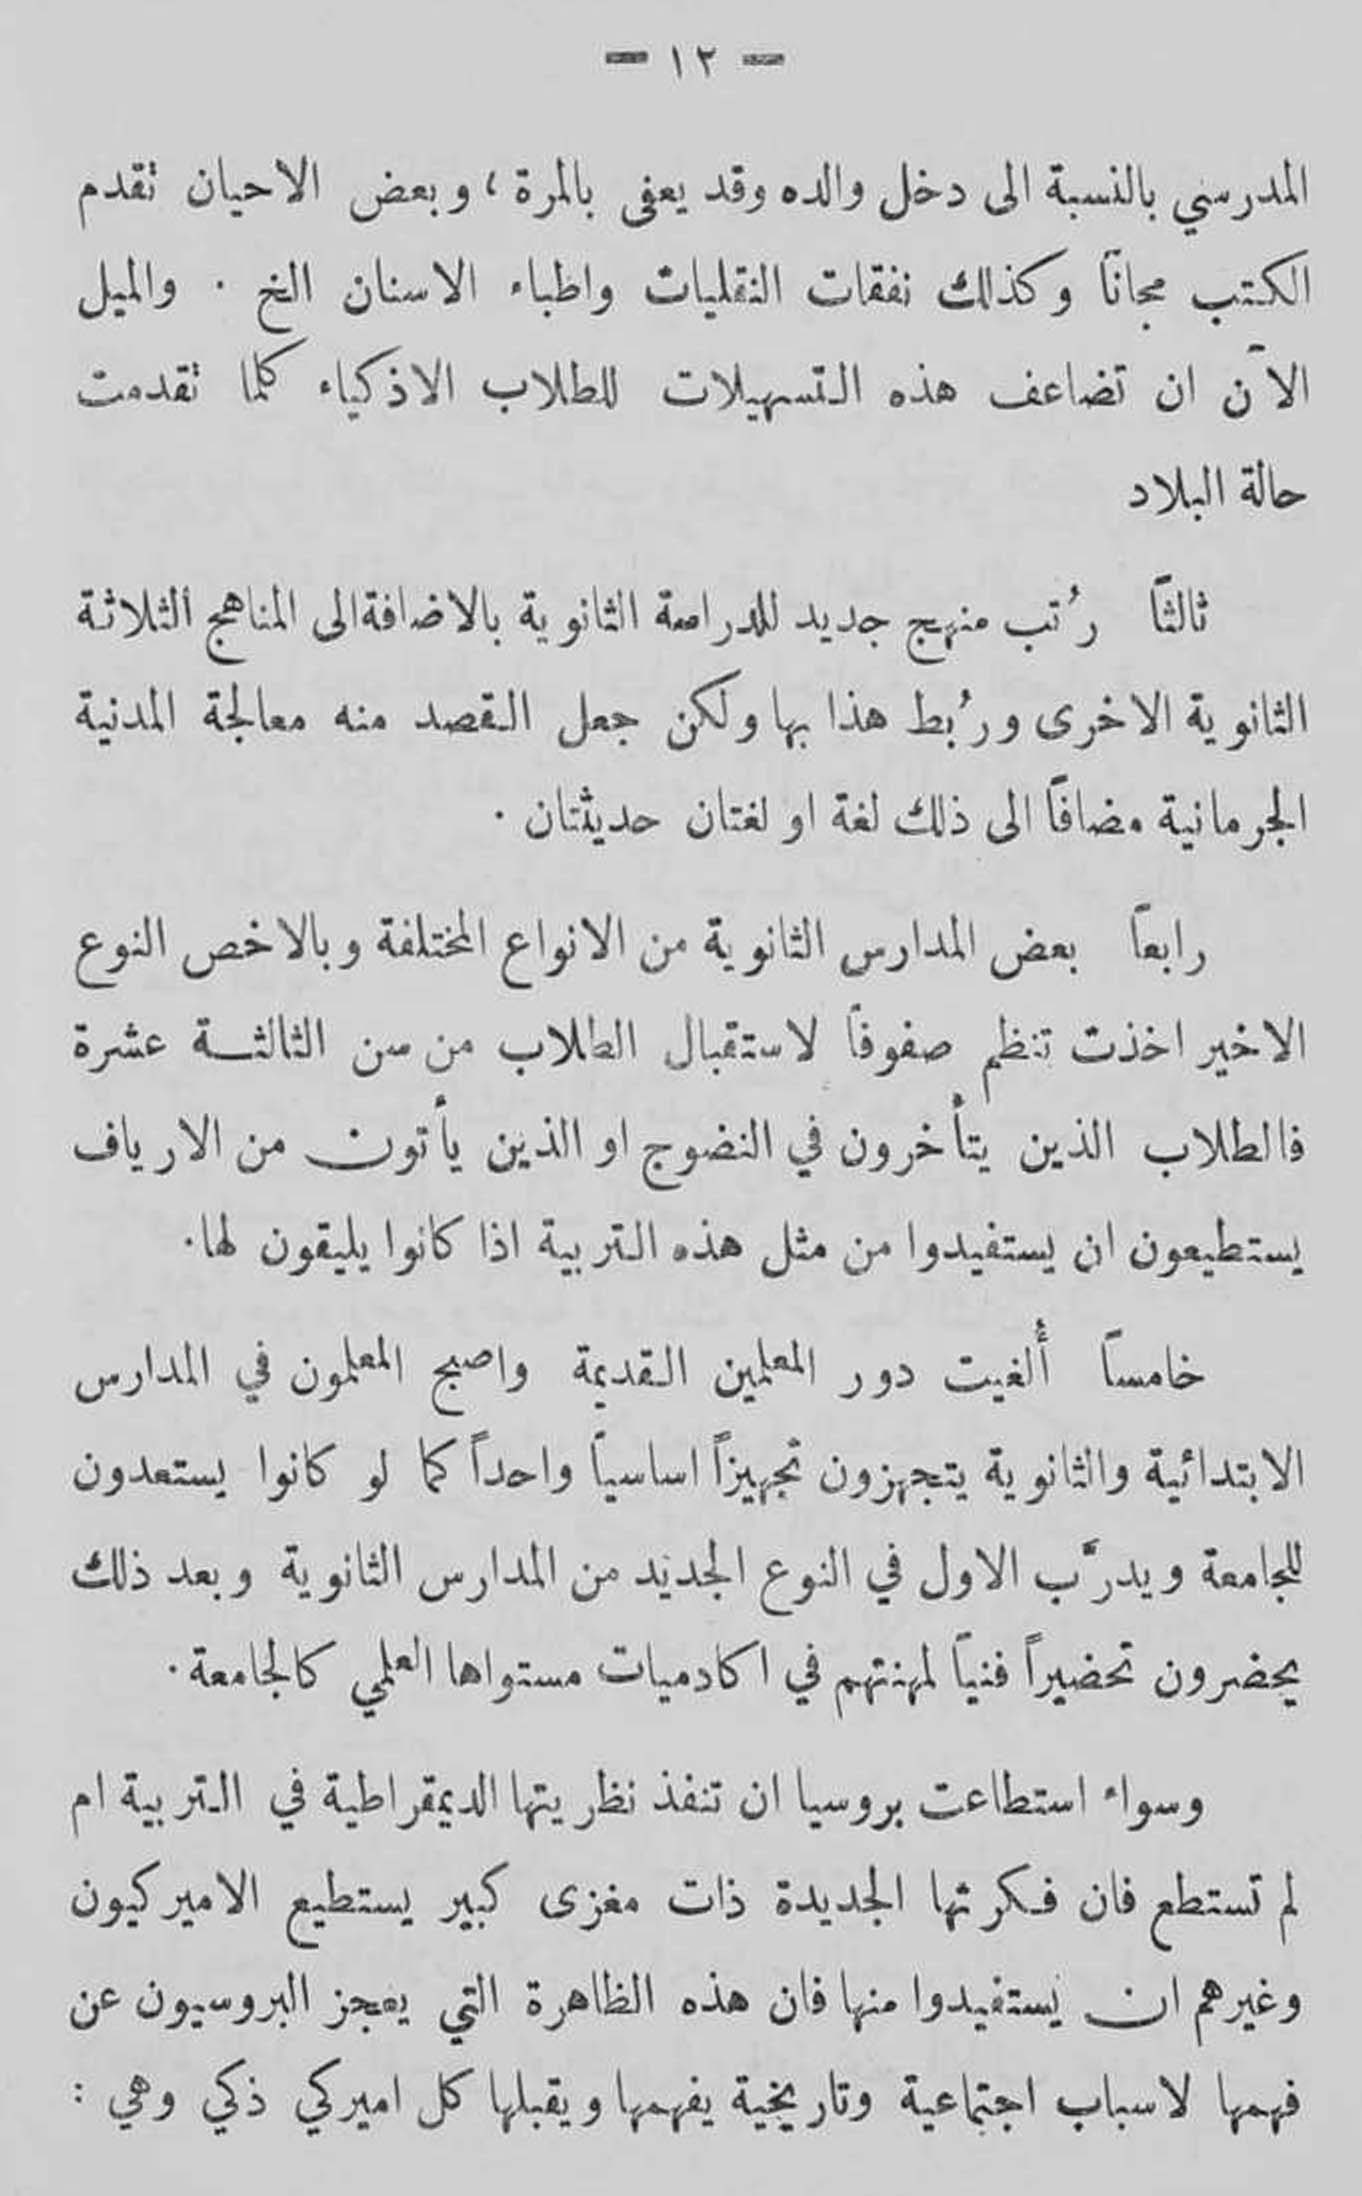 — ١٣ —
المدرسي بالنسبة الى دخل والده وقد يعفى بالمرة ، وبعض الاحيان تقدم
الكتب مجاناً وكذلك نفقات النقليات واطباء الاسنان الخ . والميل
الآن ان تضاعف هذه التسهيلات للطلاب الاذكياء كلما تقدمت
حالة البلاد
ثالثاً رُتب منهج جديد للدراسة الثانوية بالاضافة الى المناهج الثلاثة
الثانوية الاخرى ورُبط هذا بها ولكن جعل القصد منه معالجة المدنية
الجرمانية مضافاً الى ذلك لغة او لغتان حديثتان .
رابعاً بعض المدارس الثانوية من الانواع المختلفة وبالاخص النوع
الاخير اخذت تنظم صفوفاً لاستقبال الطلاب من سن الثالثة عشرة
فالطلاب الذين يتأخرون في النضوج او الذين يأتون من الارياف
يستطيعون ان يستفيدوا من مثل هذه التربية اذا كانوا يليقون لها.
خامساً أُلغيت دور المعلمين القديمة واصبح المعلمون في المدارس
الابتدائية والثانوية يتجهزون تجهيزاً اساسياً واحداً كما لو كانوا يستعدون
للجامعة ويدرَّب الاول في النوع الجديد من المدارس الثانوية وبعد ذلك
يحضرون تحضيراً فنياً لمهنتهم في اكادميات مستواها العلمي كالجامعة .
وسواء استطاعت بروسيا ان تنفذ نظريتها الديمقراطية في التربية ام
لم تستطع فان فكرتها الجديدة ذات مغزى كبير يستطيع الاميركيون
وغيرهم ان يستفيدوا منها فان هذه الظاهرة التي يعجز البروسيون عن
فهمها لاسباب اجتماعية وتاريخية يفهمها ويقبلها كل اميركي ذكي وهي :